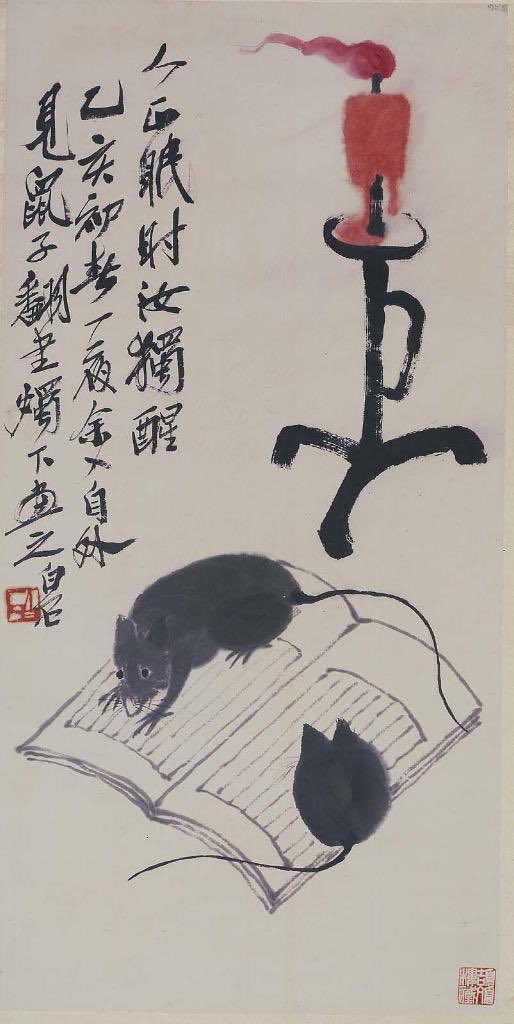 人正眠时汝獨醒
乙亥初春一夜余入自外
見鼠子翻书燭下画之白石